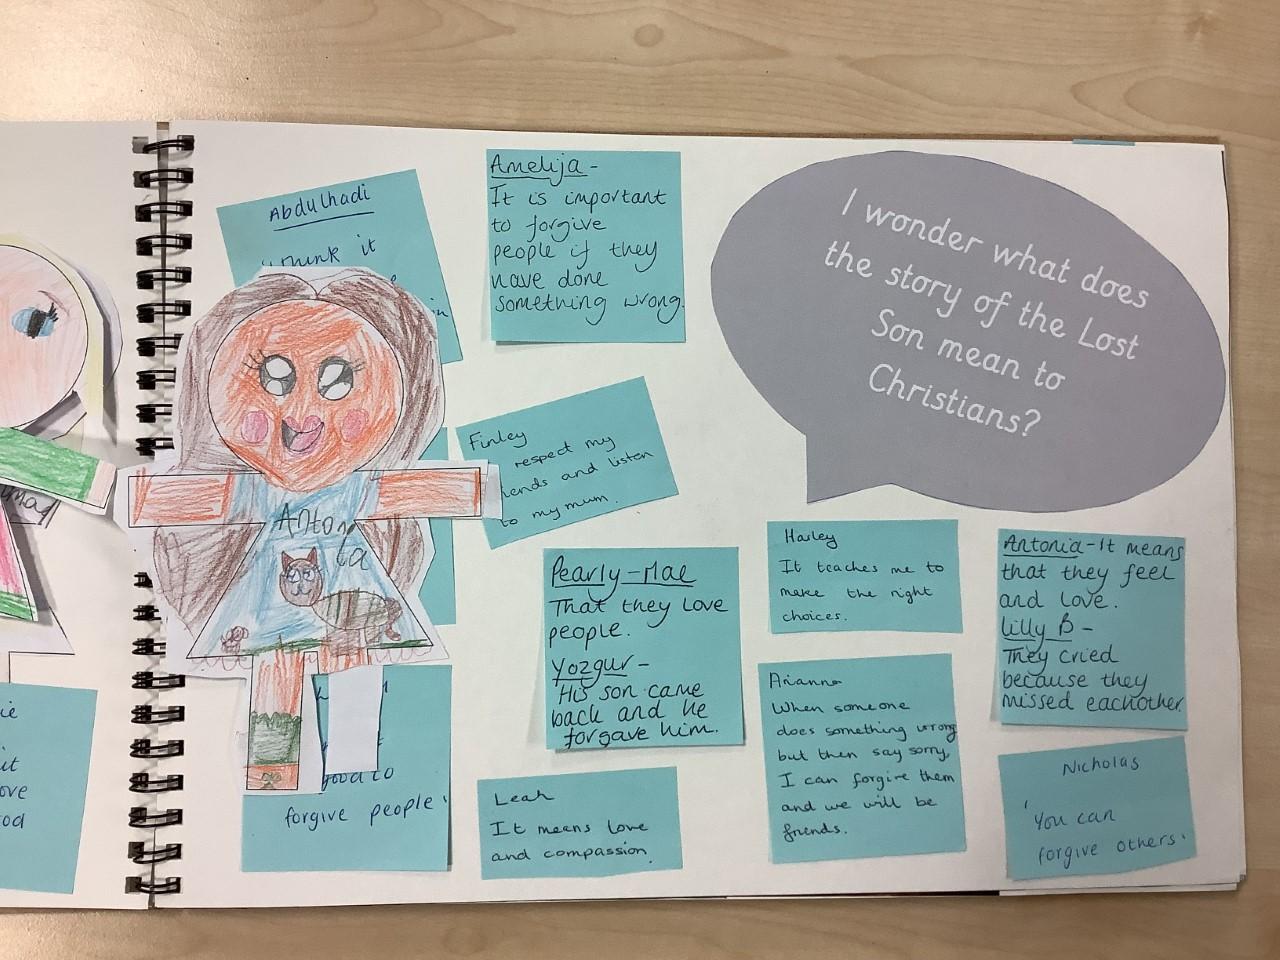 Abdulhadi
think it
Amelija -
It is important
to forgive
people if they
have done
something wrong.
I wonder what does
the story of the Lost
Son mean to
Christians?
Finley
respect my
and listen
to my mum.
Antonia
Pearly-Mae
That they love
people.
Yozgur -
His son came
back and he
forgave him.
Harley
It teaches me to
make the right
choices.
Antonia - It means
that they feel
and love.
Lilly B -
They cried
because they
missed eachother.
Arianna
When someone
does something wrong
but then say sorry,
I can forgive them
and we will be
friends.
Nicholas
'You can
forgive others'
Leah
It means love
and compassion.
good to
forgive people'
it